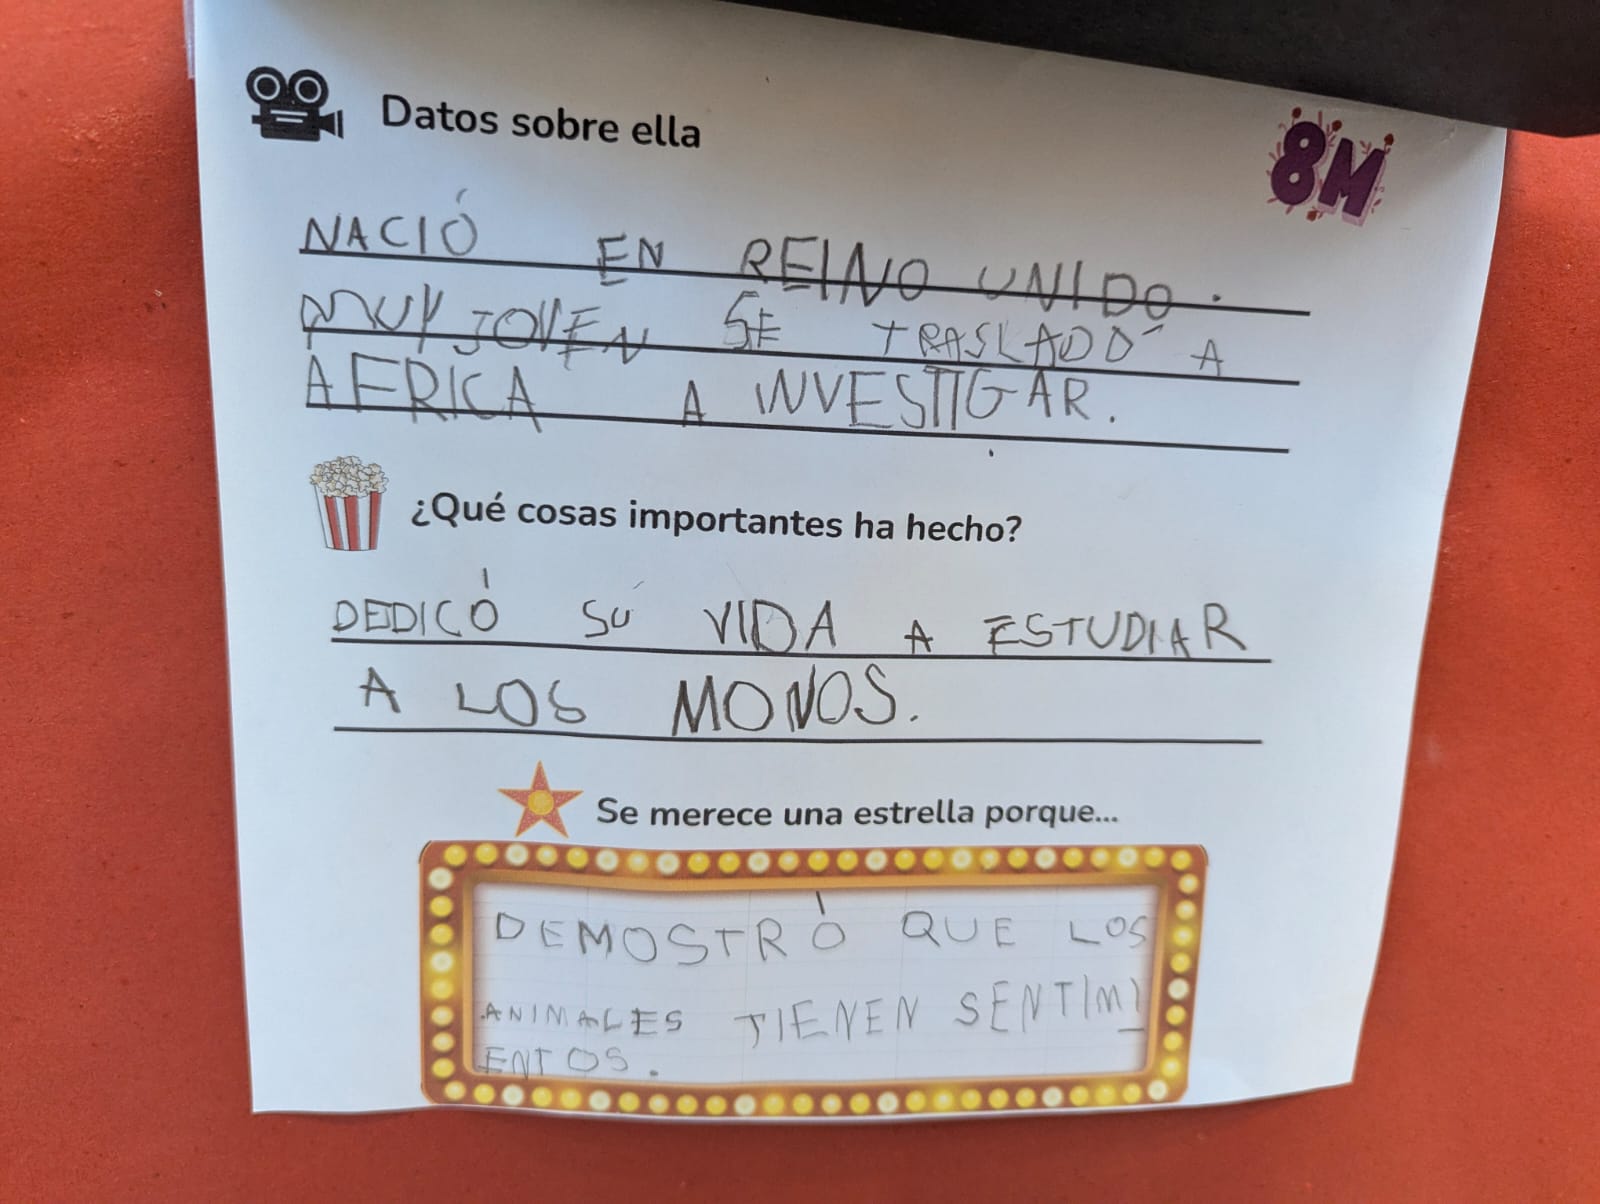 Datos sobre ella
8M
NACIÓ EN REINO UNIDO.
MUY JOVEN SE TRASLADÓ A
AFRICA A INVESTIGAR.
¿Qué cosas importantes ha hecho?
DEDICÓ SÚ VIDA A ESTUDIAR
A LOS MONOS.
Se merece una estrella porque...
DEMOSTRÓ QUE LOS
ANIMALES TIENEN SENTIMI
ENTOS.